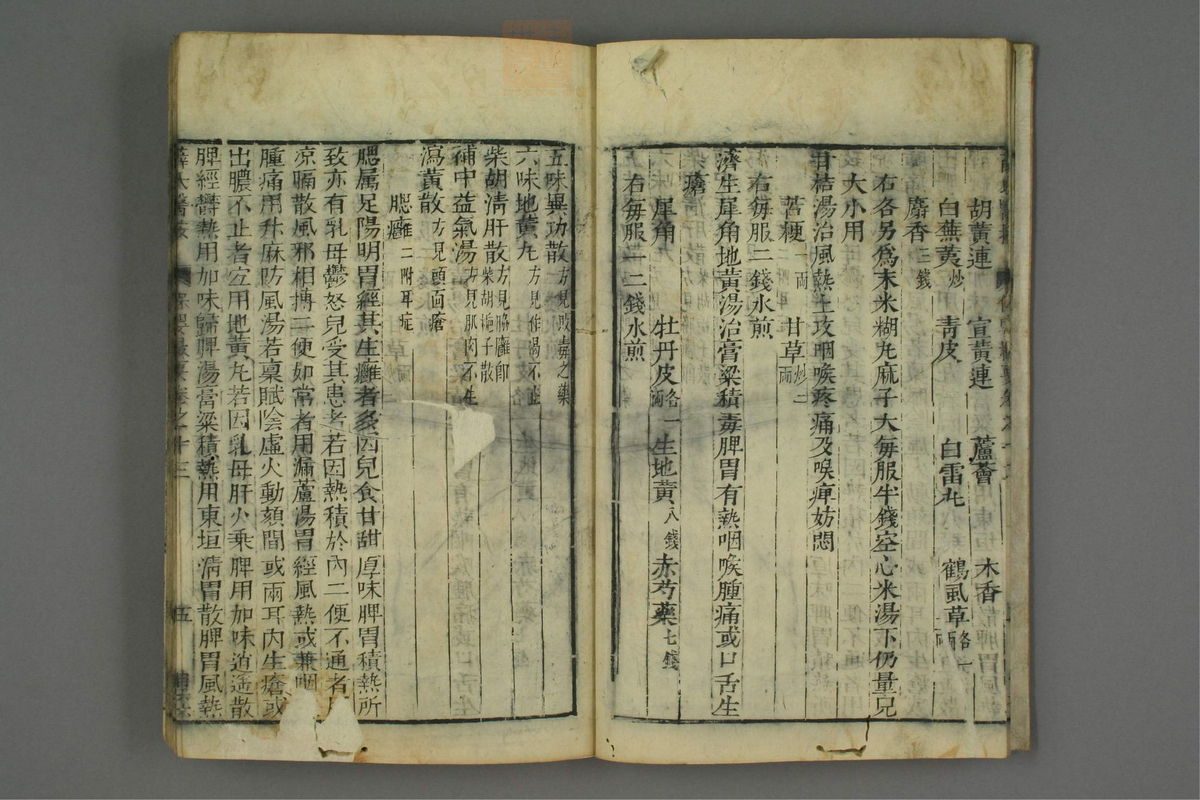 胡黃連 宣黃連 蘆薈 木香
白蕪荑炒 青皮 白雷丸 鶴虱草各一兩
麝香三錢
右各另為末米糊丸麻子大每服半錢空心米湯下仍量兒
大小用
甘桔湯治風熱上攻咽喉疼痛及喉痺妨悶
苦梗一兩 甘草炒二兩
右每服二錢水煎
濟生犀角地黃湯治膏粱積毒脾胃有熱咽喉腫痛或口舌生
瘡
犀角 牡丹皮各一兩 生地黃八錢 赤芍藥七錢
右每服一二錢水煎
五味異功散方見敗毒之藥
六味地黃丸方見作渴不止
柴胡清肝散方見脇癰即柴胡梔子散
補中益氣湯方見肌肉不生
瀉黃散方見頭面瘡
腮癰二附耳症
腮屬足陽明胃經其生癰者多因兒食甘甜厚味脾胃積熱所
致亦有乳母鬱怒兒受其患者若因熱積於內二便不通者用
涼膈散風邪相摶二便如常者用漏蘆湯胃經風熱或兼咽
腫痛用升麻防風湯若稟賦陰虛火動頦間或兩耳內生瘡或
出膿不止者宜用地黃丸若因乳母肝火乘脾用加味逍遙散
脾經鬱熱用加味歸脾湯膏粱積熱用東垣清胃散脾胃風熱
薛 醫 保嬰 卷之十三 五